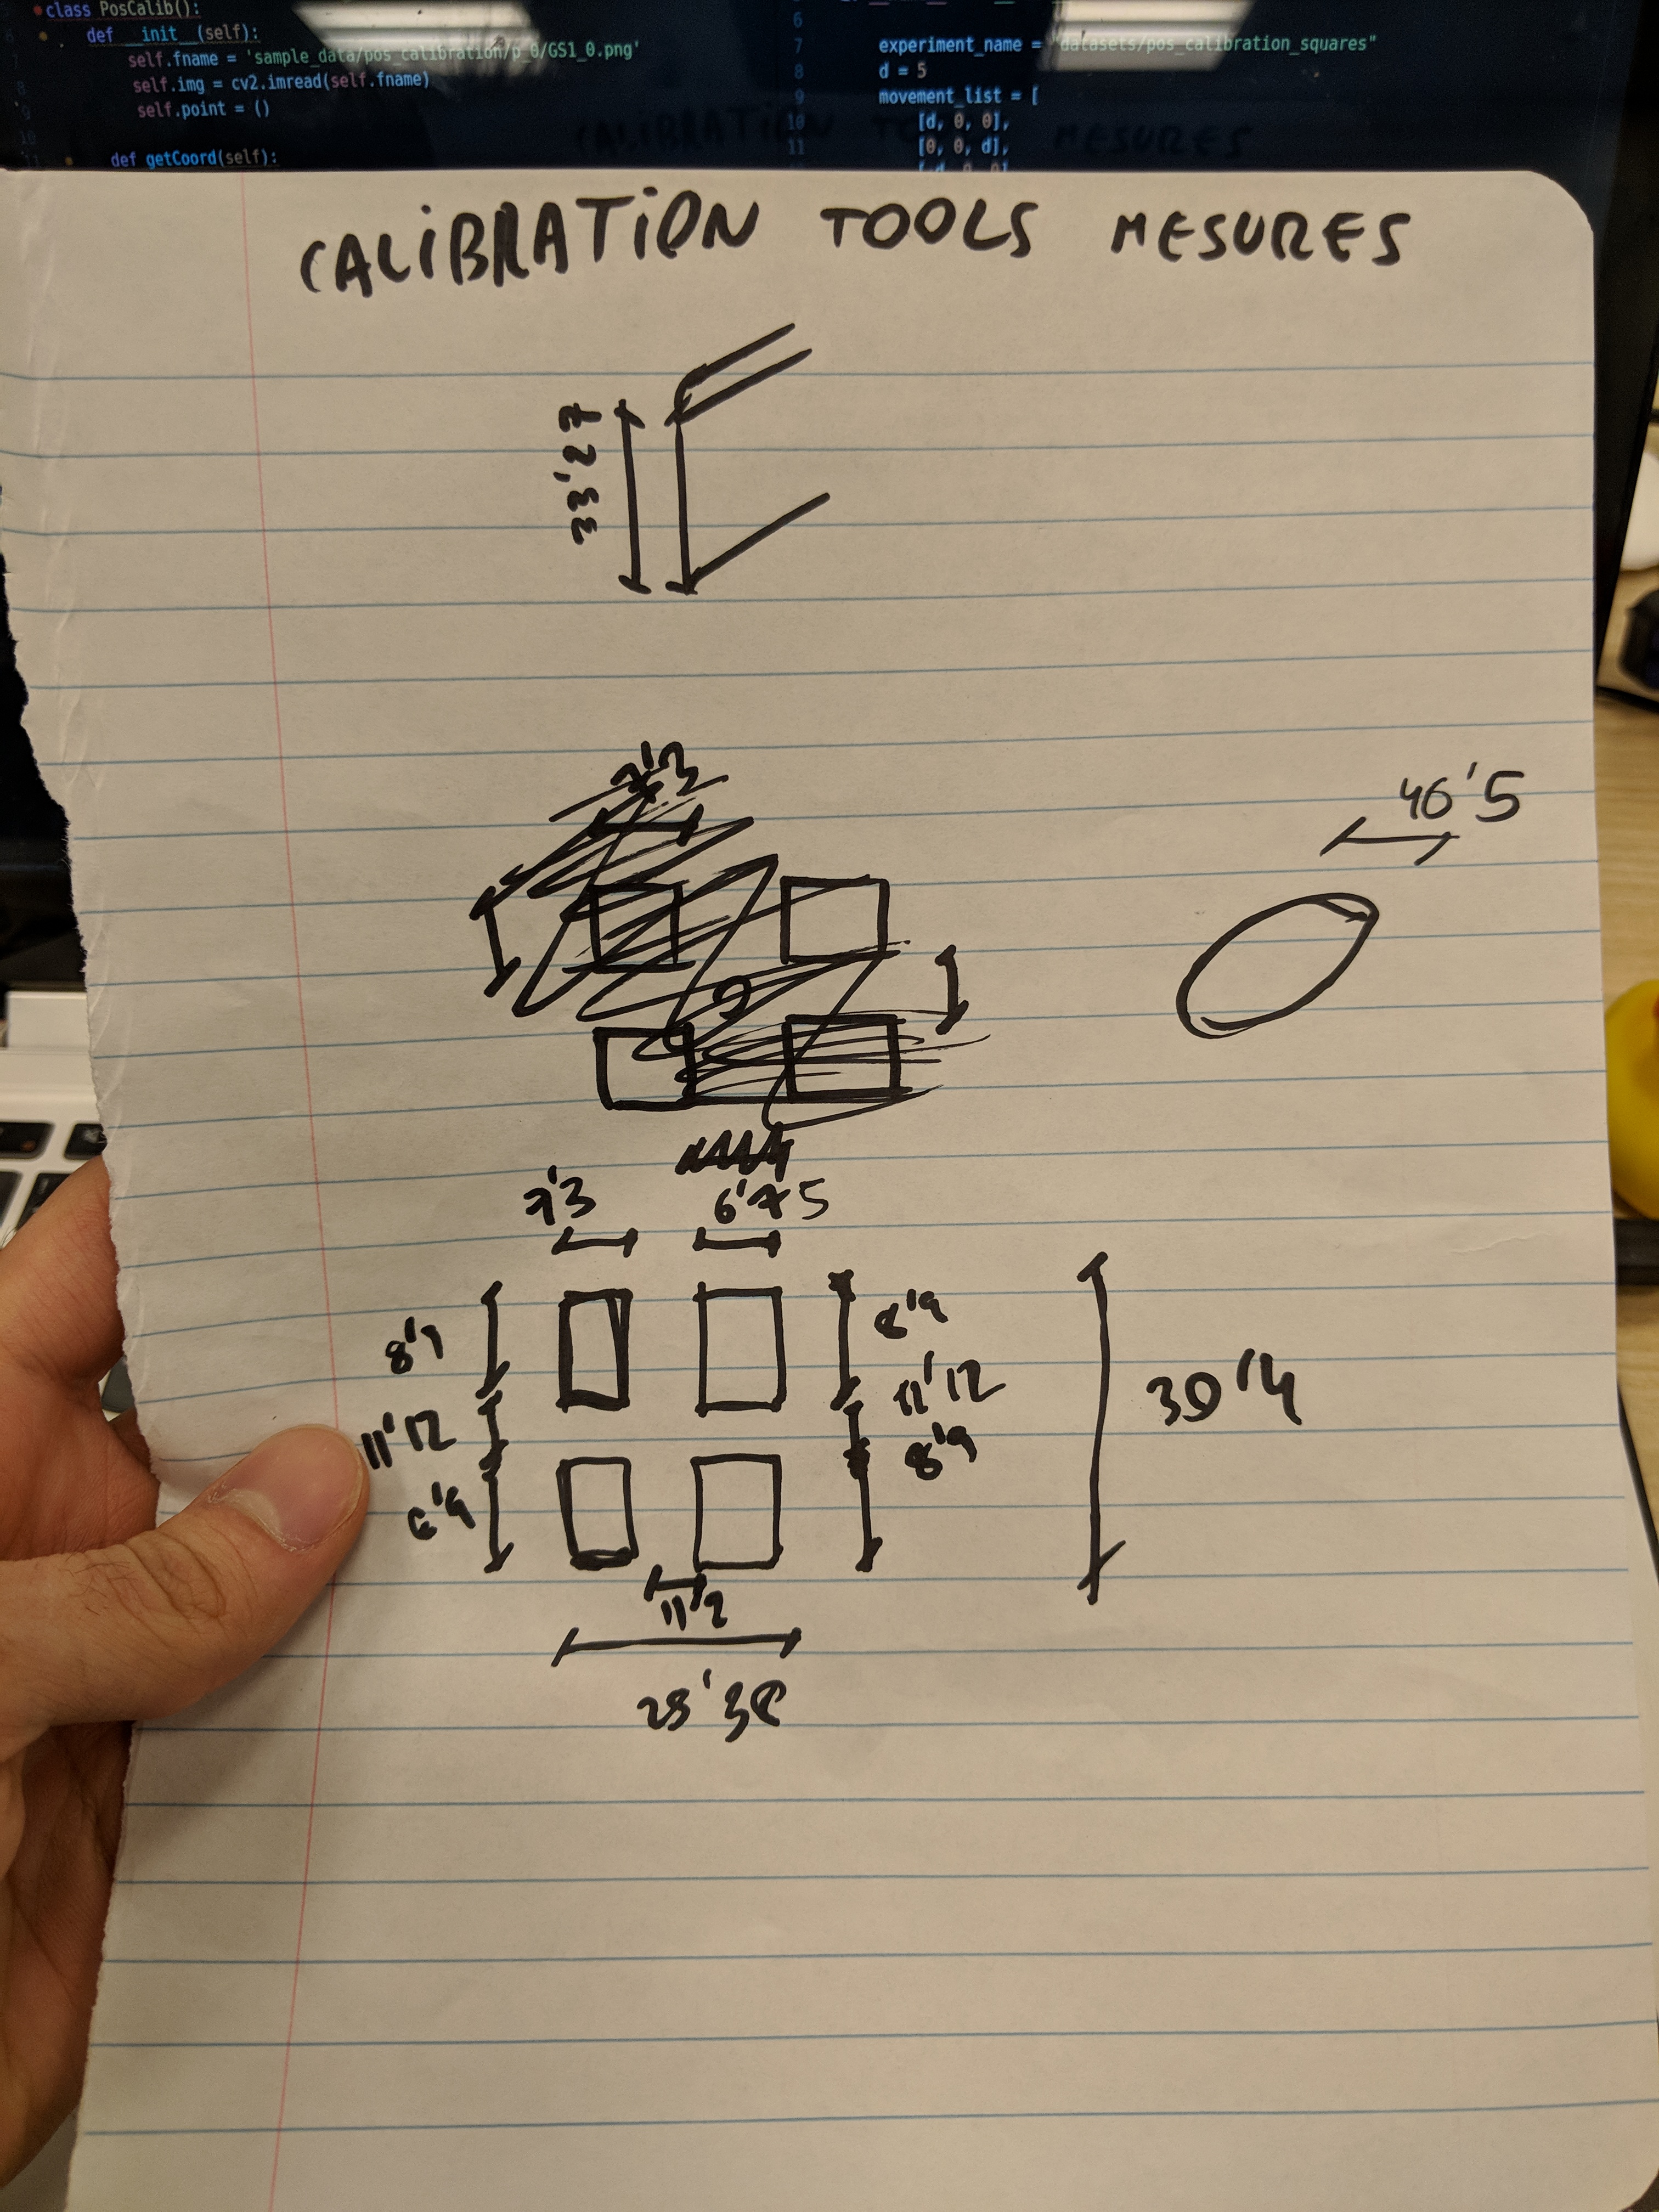 class PosCalib():
def __init__(self):
self.fname = 'sample_data/pos_calibration/p_0/GS1_0.png'
self.img = cv2.imread(self.fname)
self.point = ()
def getCoord(self):
6
7 experiment_name = "datasets/pos_calibration_squares"
8 d = 5
9 movement_list = [
10 [d, 0, 0],
11 [0, 0, d],
CALIBRATION TOOLS MESURES
33'27
40'5
7'3
6'75
8'9
8'9
11'12
11'12
8'9
30'4
11'2